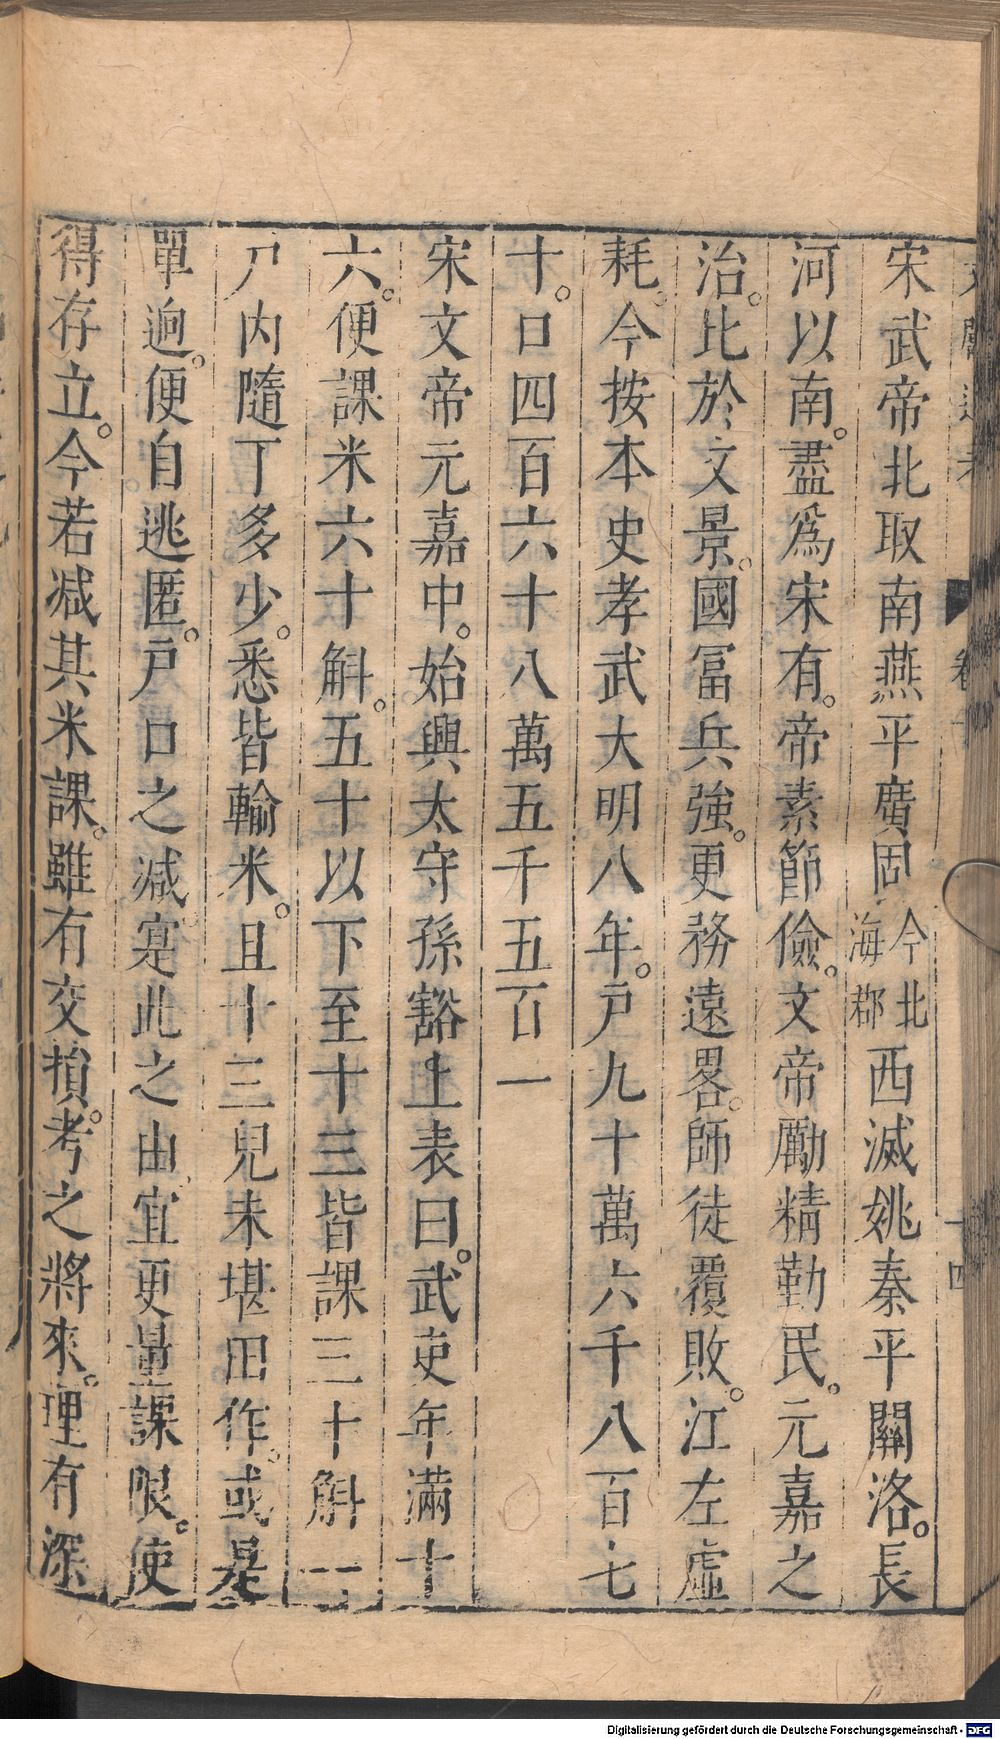 宋武帝北取南燕平廣固今北海郡西滅姚秦平關洛。長
河以南。盡爲宋有。帝素節儉。文帝勵精勤民。元嘉之
治。比於文景。國冨兵強。更務遠畧。師徒覆敗。江左虛
耗。今按本史孝武大明八年。戸九十萬六千八百七
十。口四百六十八萬五千五百一
宋文帝元嘉中。始興太守孫豁上表曰。武吏年滿十
六。便課米六十斛。五十以下至十三皆課三十斛一
戸內隨丁多少。悉皆輸米。且十三兒未堪田作。或是
單逈。便自逃匿。戸口之減寔此之由宜更量課限。使
得存立。今若減其米課。雖有交損。考之將來。理有深
十四
Digitalisierung gefördert durch die Deutsche Forschungsgemeinschaft - DFG